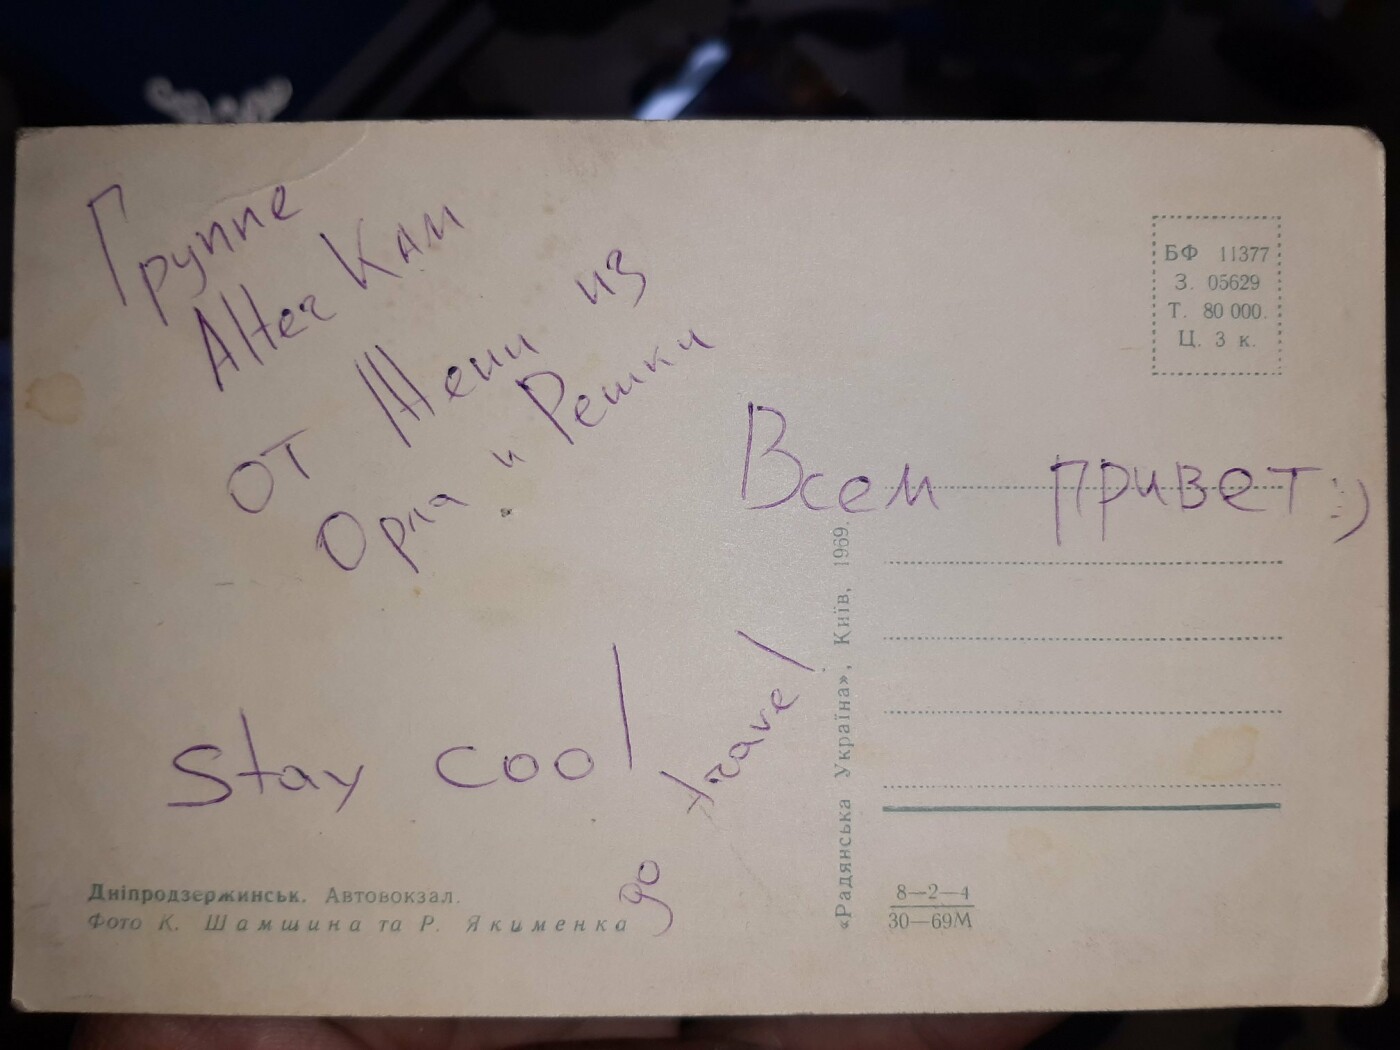 Группе
Alter Кам
от Жени из
Орла и Решки
Всем привет:)
Stay cool
go travel
БФ 11377
З. 05629
Т. 80 000.
Ц. 3 к.
«Радянська Україна», Київ, 1969.
Дніпродзержинськ. Автовокзал.
Фото К. Шамшина та Р. Якименка
8—2—4
30—69М